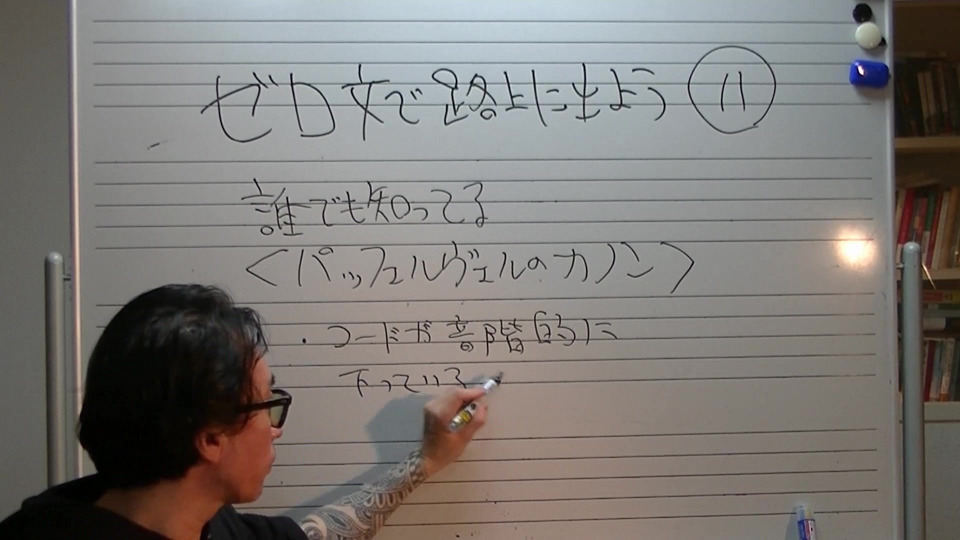 ゼロ文で路上に出よう ⑪
誰でも知ってる
<パッフェルヴェルのカノン>
・コードが音階的に
下っていて